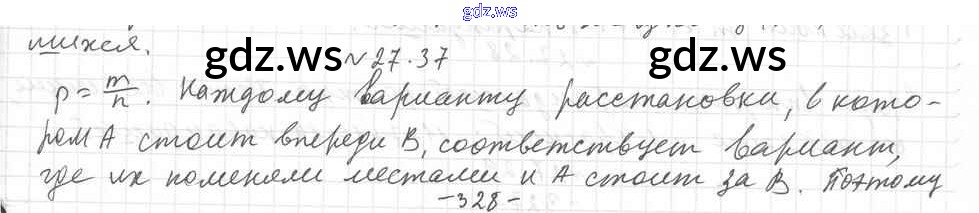 gdz.ws
шихся.
gdz.ws
gdz.ws
№27.37
p = m/n. Каждому варианту расстановки, в кото-
ром А стоит впереди В, соответствует вариант,
где их поменяли местами и А стоит за В. Поэтому
-328-